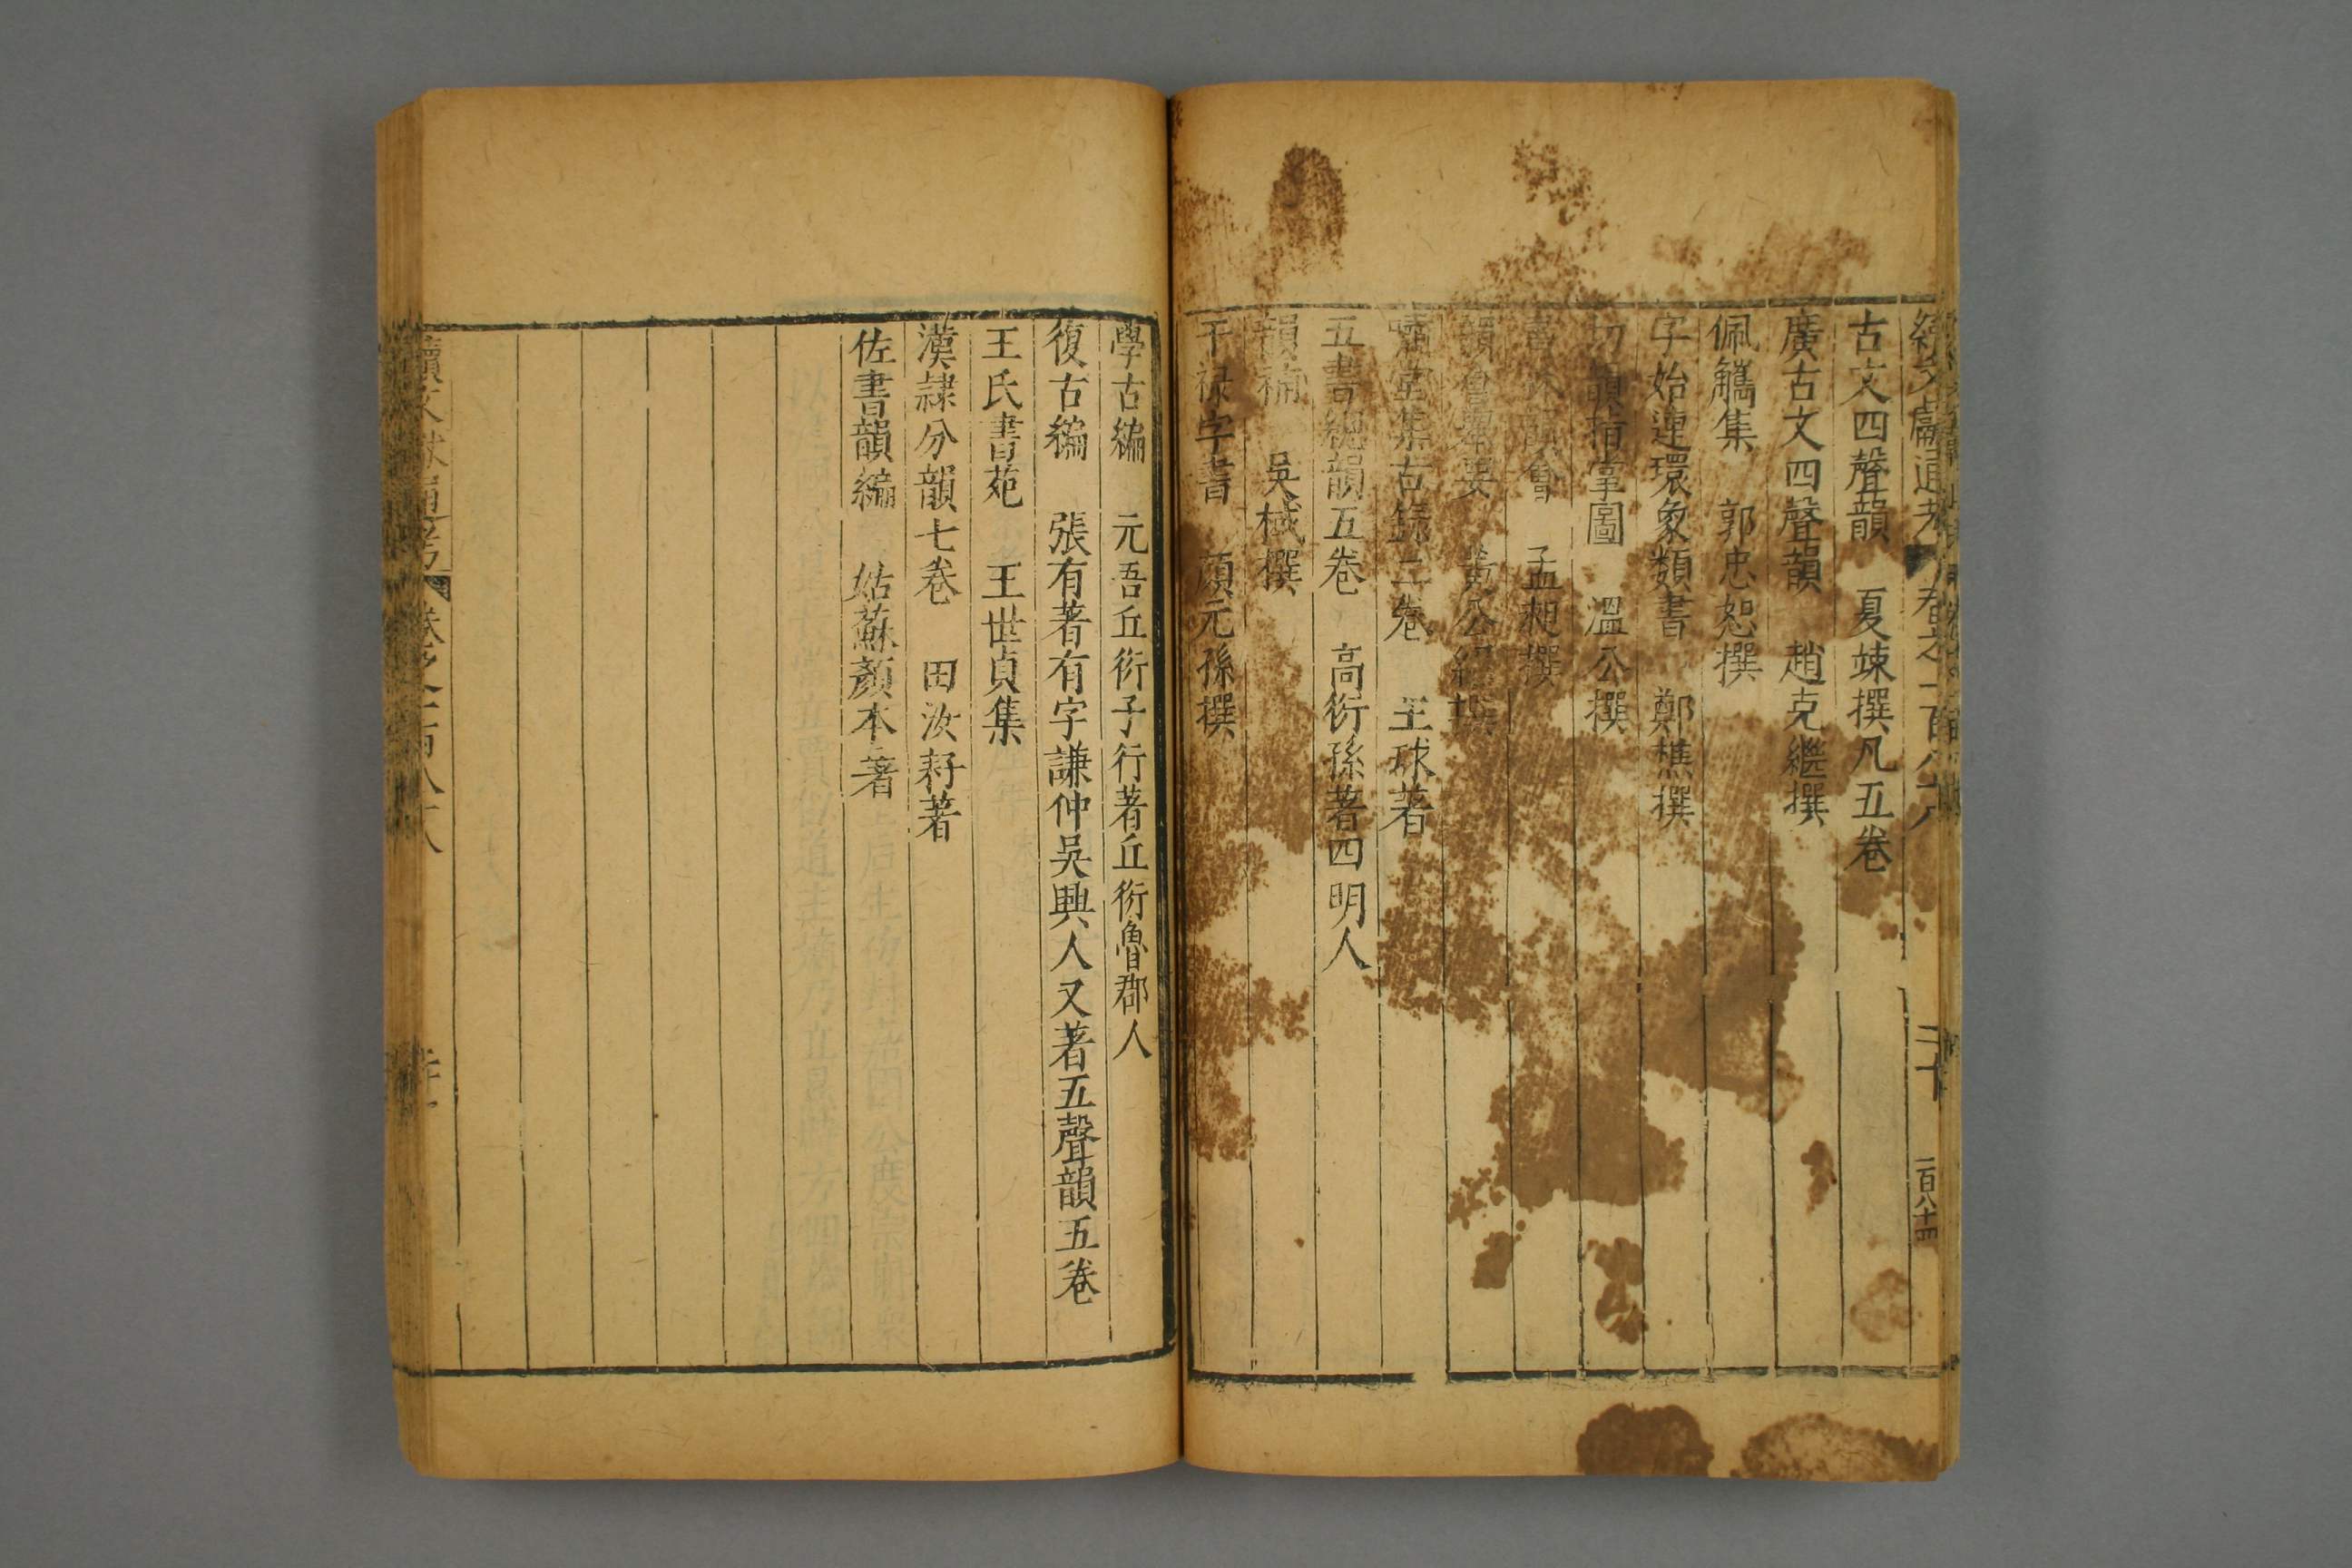 續文獻通考 卷之一百八十八 三十 一百八十四
古文四聲韻 夏竦撰凡五卷
廣古文四聲韻 趙克繼撰
佩觿集 郭忠恕撰
字始連環象類書 鄭樵撰
切韻指掌圖 溫公撰
書林韻會 孟昶撰
韻會舉要 黃公紹撰
嘯堂集古錄二卷 王球著
五書總韻五卷 高衍孫著四明人
韻補 吳棫撰
干祿字書 顏元孫撰
學古編 元吾丘衍子行著丘衍魯郡人
復古編 張有著有字謙仲吳興人又著五聲韻五卷
王氏書苑 王世貞集
漢隷分韻七卷 田汝耔著
佐書韻編 姑蘇顏本著
續文獻通考 卷之一百八十八